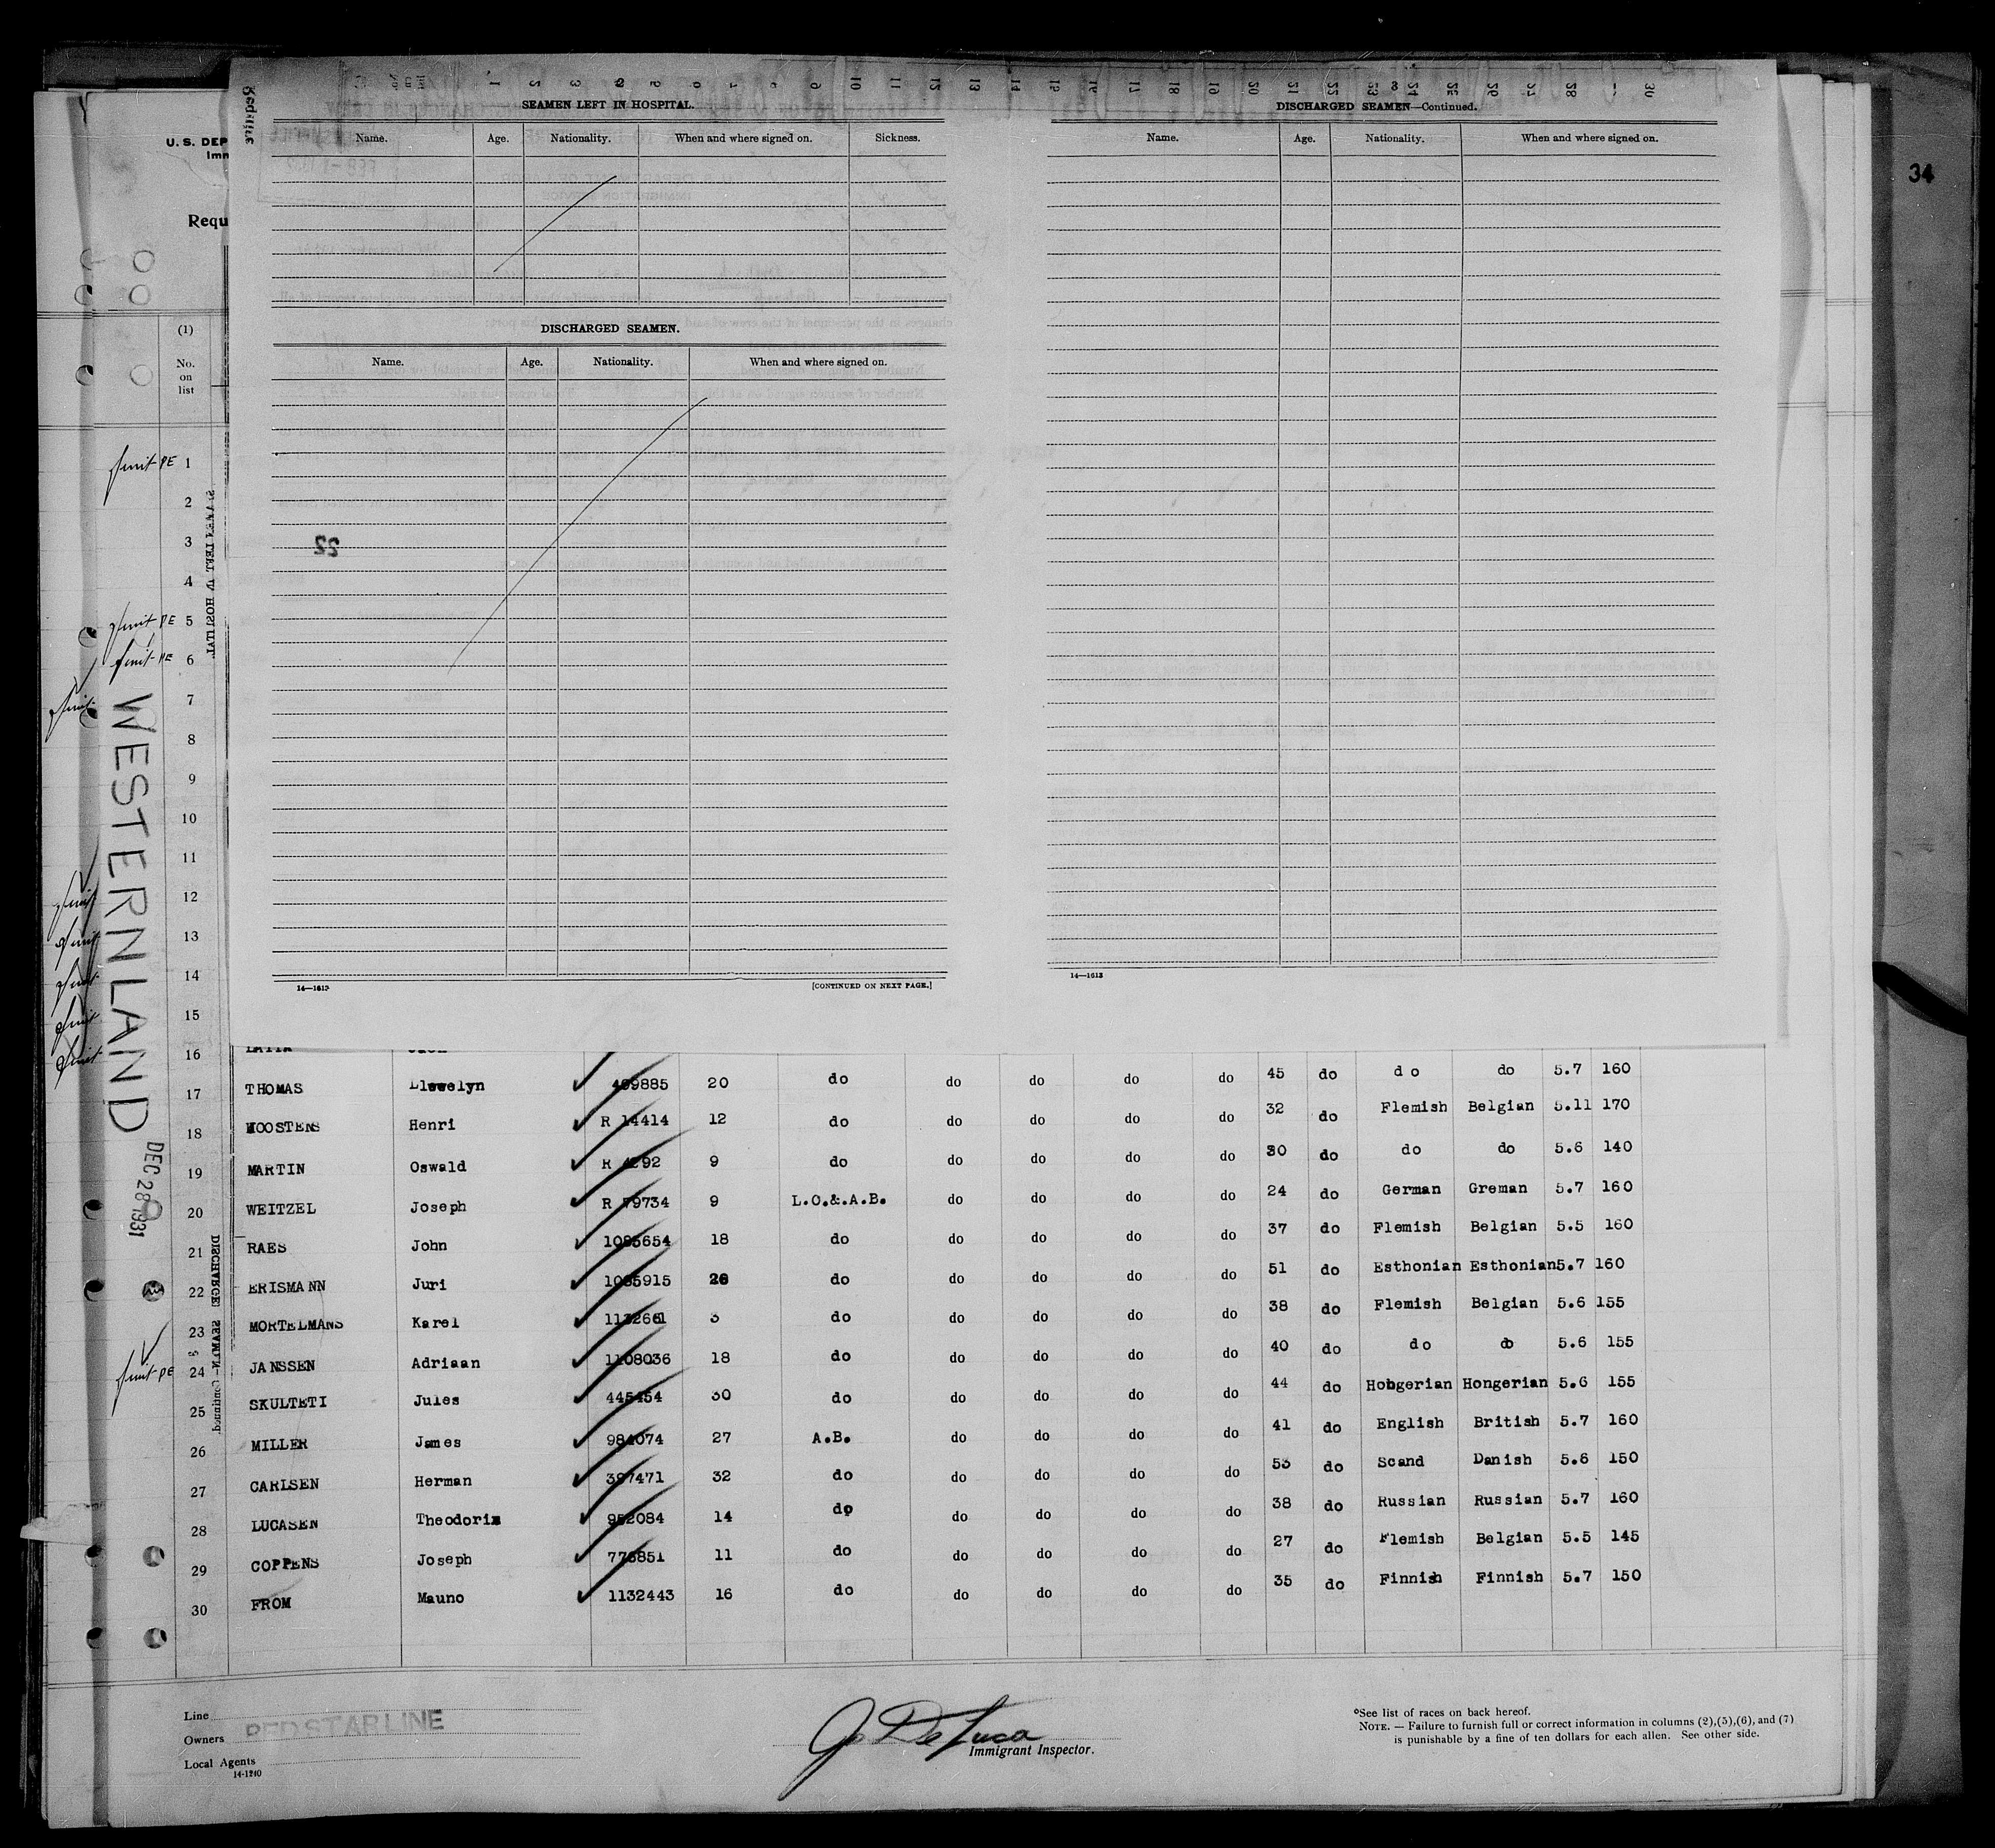 34
U. S. DEP
Imm
Requ
SEAMEN LEFT IN HOSPITAL.
Name. Age. Nationality. When and where signed on. Sickness.
DISCHARGED SEAMEN.
Name. Age. Nationality. When and where signed on.
22
14—1613 [CONTINUED ON NEXT PAGE.]
DISCHARGED SEAMEN—Continued.
Name. Age. Nationality. When and where signed on.
14—1613
(1)
No.
on
list
1
2
3
4
5
6
7
8
9
10
11
12
13
14
15
16
WESTERNLAND
DEC 28 1931
17 THOMAS Llewelyn 499885 20 do do do do do 45 do do do 5.7 160
18 MOOSTENS Henri R 14414 12 do do do do do 32 do Flemish Belgian 5.11 170
19 MARTIN Oswald R 4292 9 do do do do do 30 do do do 5.6 140
20 WEITZEL Joseph R 79734 9 L.O.&.A.B. do do do do 24 do German Greman 5.7 160
21 RAES John 1085654 18 do do do do do 37 do Flemish Belgian 5.5 160
22 ERISMANN Juri 1085915 26 do do do do do 51 do Esthonian Esthonian 5.7 160
23 MORTELMANS Karel 1132661 3 do do do do do 38 do Flemish Belgian 5.6 155
24 JANSSEN Adriaan 1108036 18 do do do do do 40 do do do 5.6 155
25 SKULTETI Jules 445454 30 do do do do do 44 do Hobgerian Hongerian 5.6 155
26 MILLER James 984074 27 A.B. do do do do 41 do English British 5.7 160
27 CARLSEN Herman 397471 32 do do do do do 53 do Scand Danish 5.6 150
28 LUCASEN Theodoris 952084 14 do do do do do 38 do Russian Russian 5.7 160
29 COPPENS Joseph 776851 11 do do do do do 27 do Flemish Belgian 5.5 145
30 FROM Mauno 1132443 16 do do do do do 35 do Finnish Finnish 5.7 150
Line
Owners RED STAR LINE
Local Agents
14-1240
Jo De Luca
Immigrant Inspector.
*See list of races on back hereof.
NOTE. — Failure to furnish full or correct information in columns (2),(5),(6), and (7)
is punishable by a fine of ten dollars for each alien. See other side.